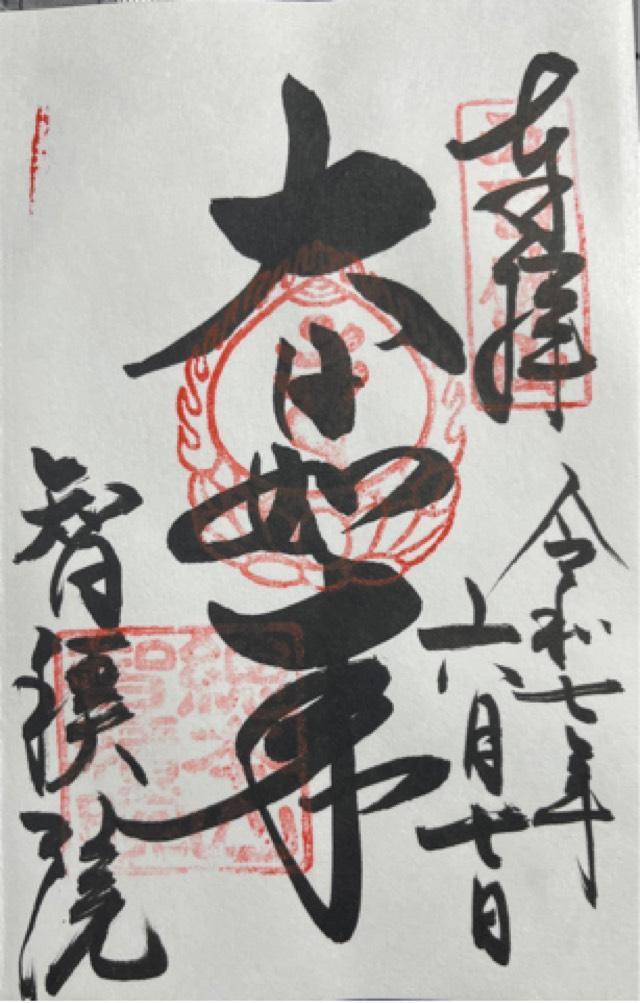 奉拝
令和七年
六月十日
大日如来
智積院